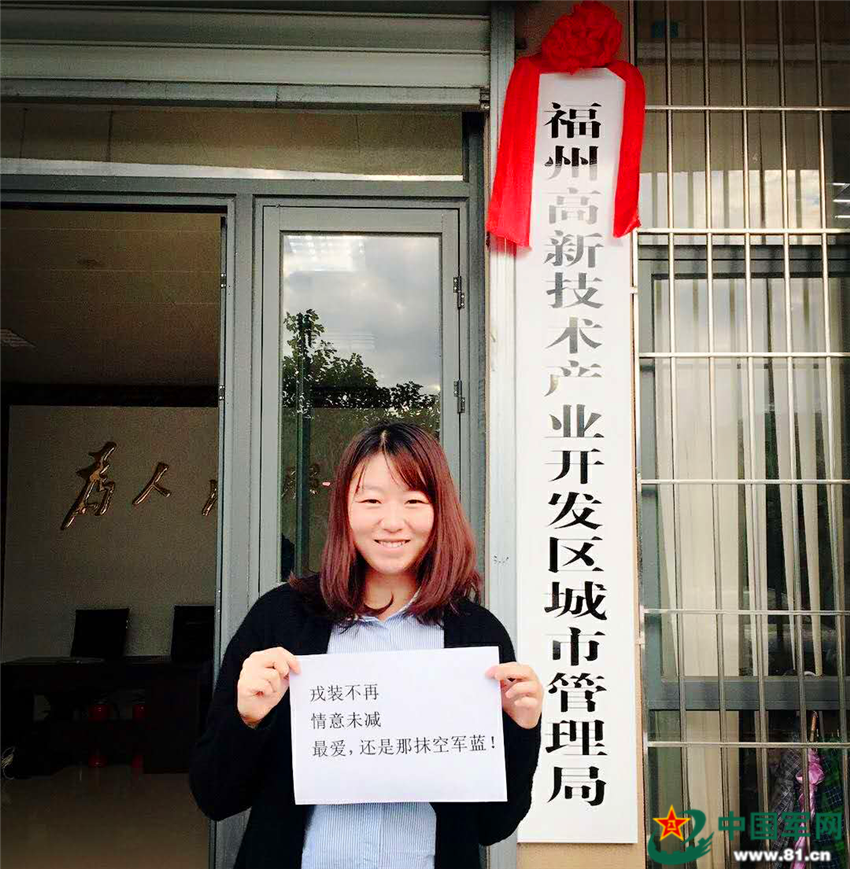 福州高新技术产业开发区城市管理局
为人
戎装不再
情意未减
最爱，还是那抹空军蓝！
中国军网
www.81.cn